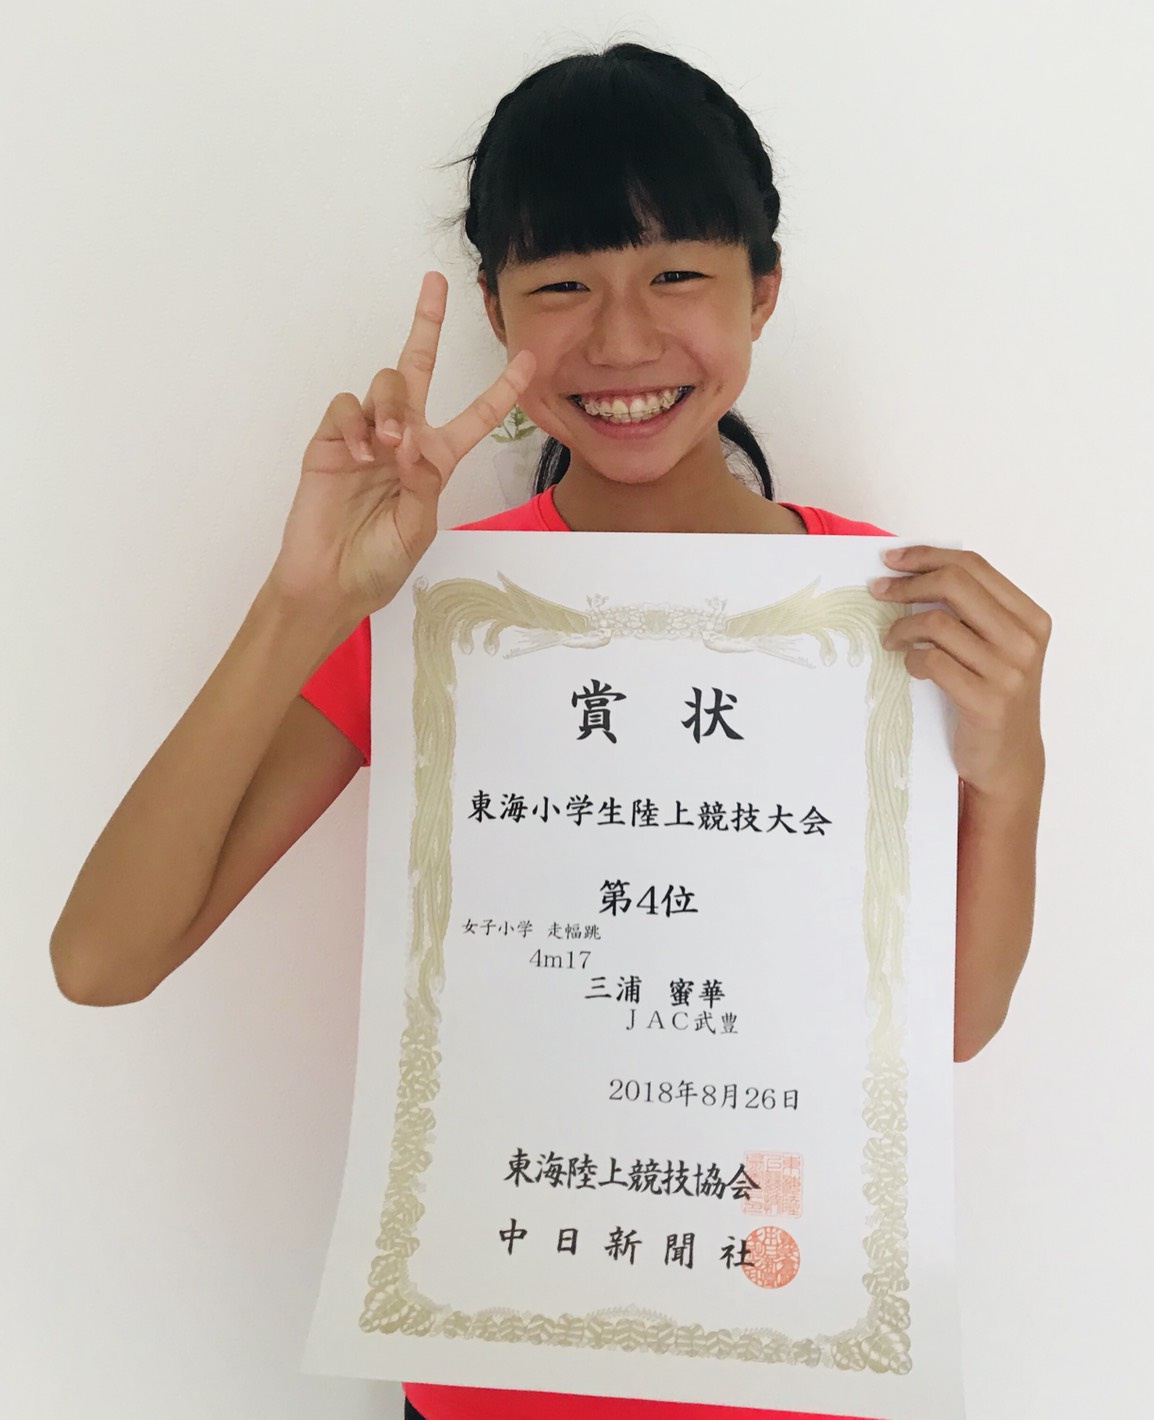 賞状
東海小学生陸上競技大会
第4位
女子小学 走幅跳
4m17
三浦 蜜華
JAC武豊
2018年8月26日
東海陸上競技協会
中日新聞社